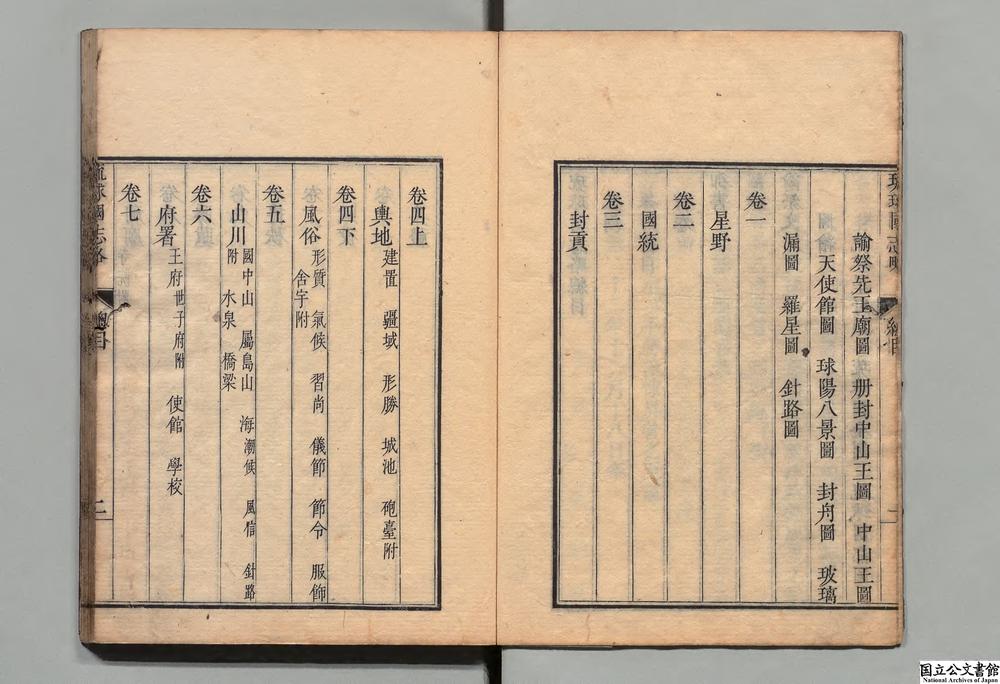 琉球國志略 總目 一
諭祭先王廟圖 册封中山王圖 中山王圖
天使館圖 球陽八景圖 封舟圖 玻璃
漏圖 羅星圖 針路圖
卷一
星野
卷二
國統
卷三
封貢
卷四上
輿地 建置 疆域 形勝 城池 砲臺附
卷四下
風俗 形質 氣候 習尚 儀節 節令 服飾
舍宇附
卷五
山川 國中山 屬島山 海潮候 風信 針路
附 水泉 橋梁
卷六
府署 王府世子府附 使館 學校
卷七
琉球國志略 總目 二
国立公文書館
National Archives of Japan